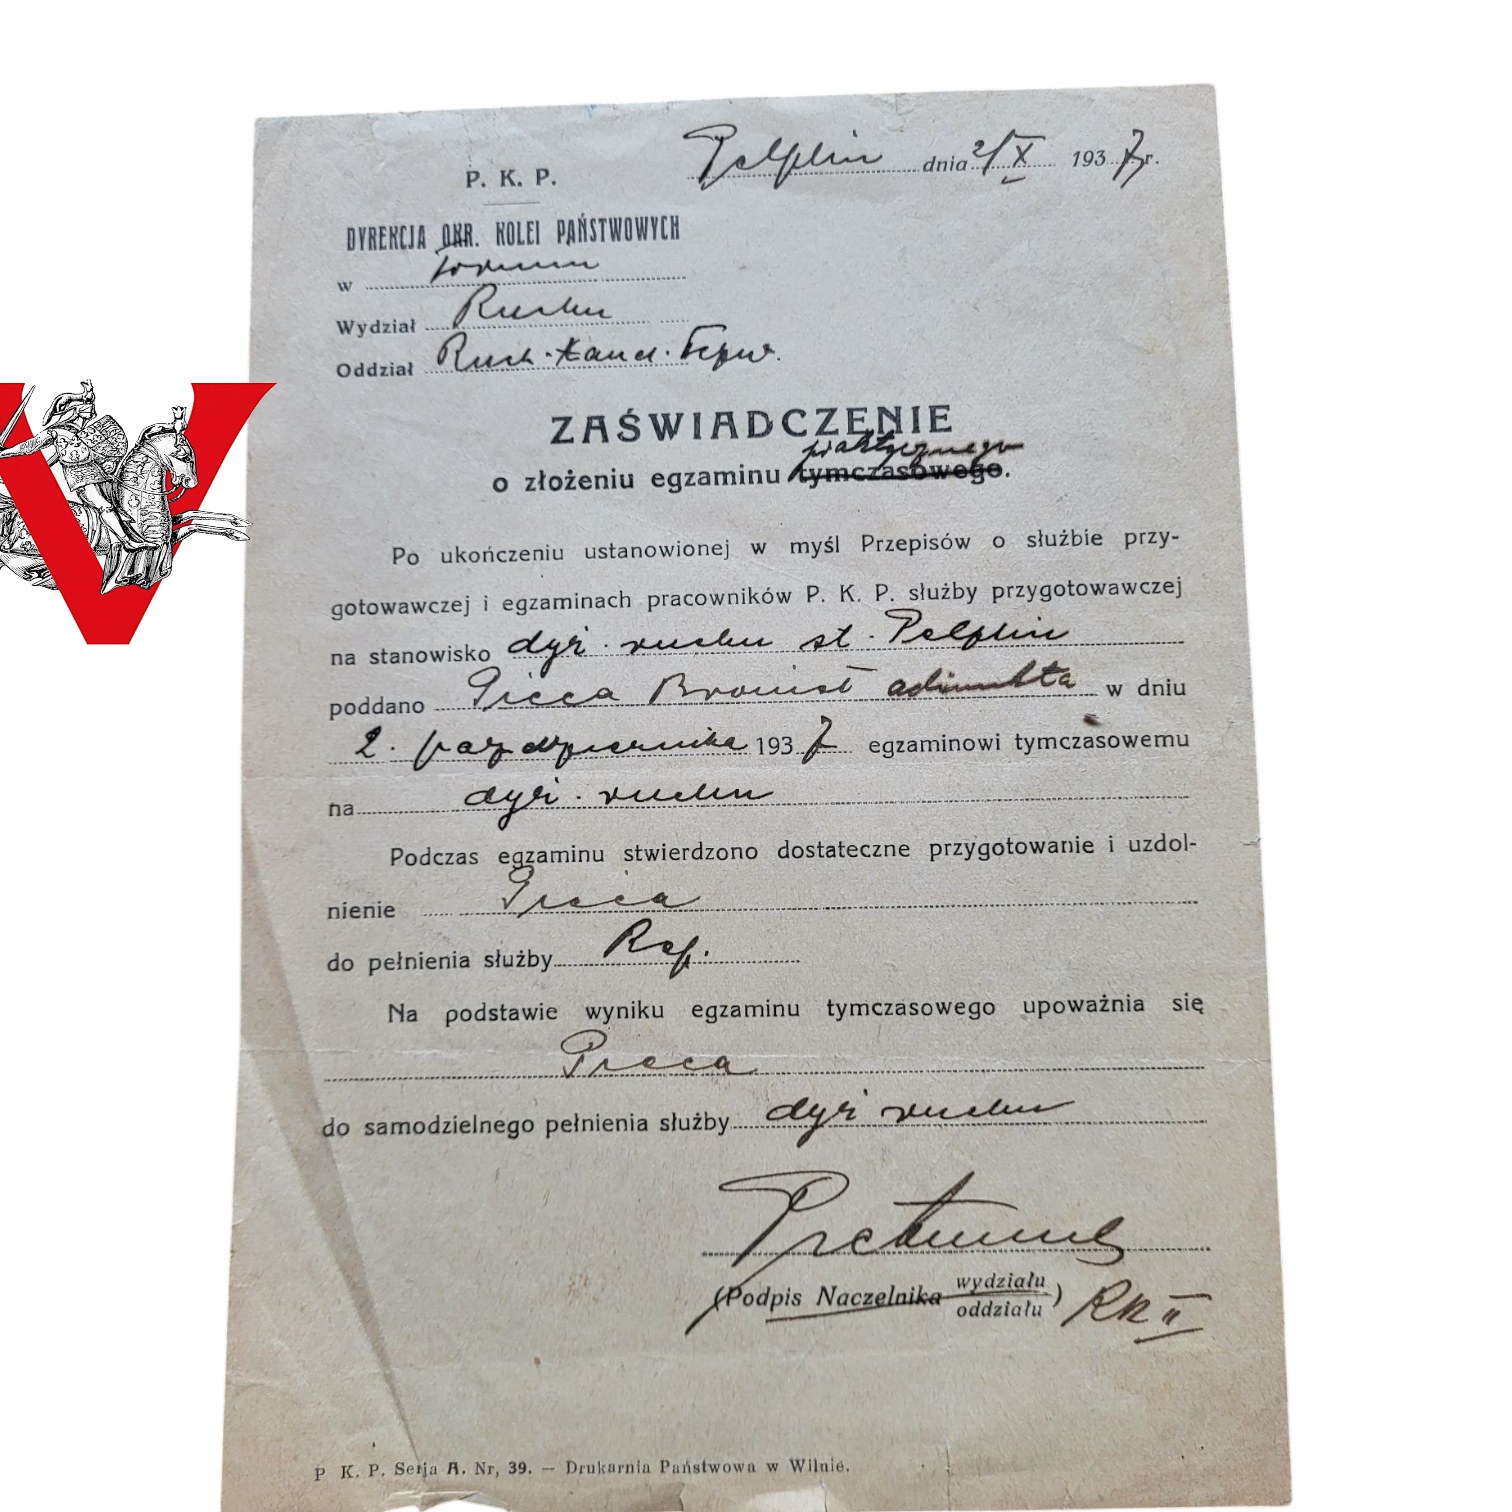 Pelplin dnia 2/X 1937 r.
P. K. P.
DYREKCJA OKR. KOLEI PAŃSTWOWYCH
w Toruniu
Wydział Ruchu
Oddział Ruch.-Hand. Tczew.
ZAŚWIADCZENIE
praktycznego
o złożeniu egzaminu tymczasowego.
Po ukończeniu ustanowionej w myśl Przepisów o służbie przy-
gotowawczej i egzaminach pracowników P. K. P. służby przygotowawczej
na stanowisko dyż. ruchu st. Pelplin
poddano Bronisł adiunkta w dniu
2. października 1937 egzaminowi tymczasowemu
na dyż. ruchu
Podczas egzaminu stwierdzono dostateczne przygotowanie i uzdol-
nienie
do pełnienia służby
Na podstawie wyniku egzaminu tymczasowego upoważnia się
do samodzielnego pełnienia służby dyż ruchu
(Podpis Naczelnika wydziału
oddziału) RK II
P K. P. Serja A. Nr, 39. — Drukarnia Państwowa w Wilnie.